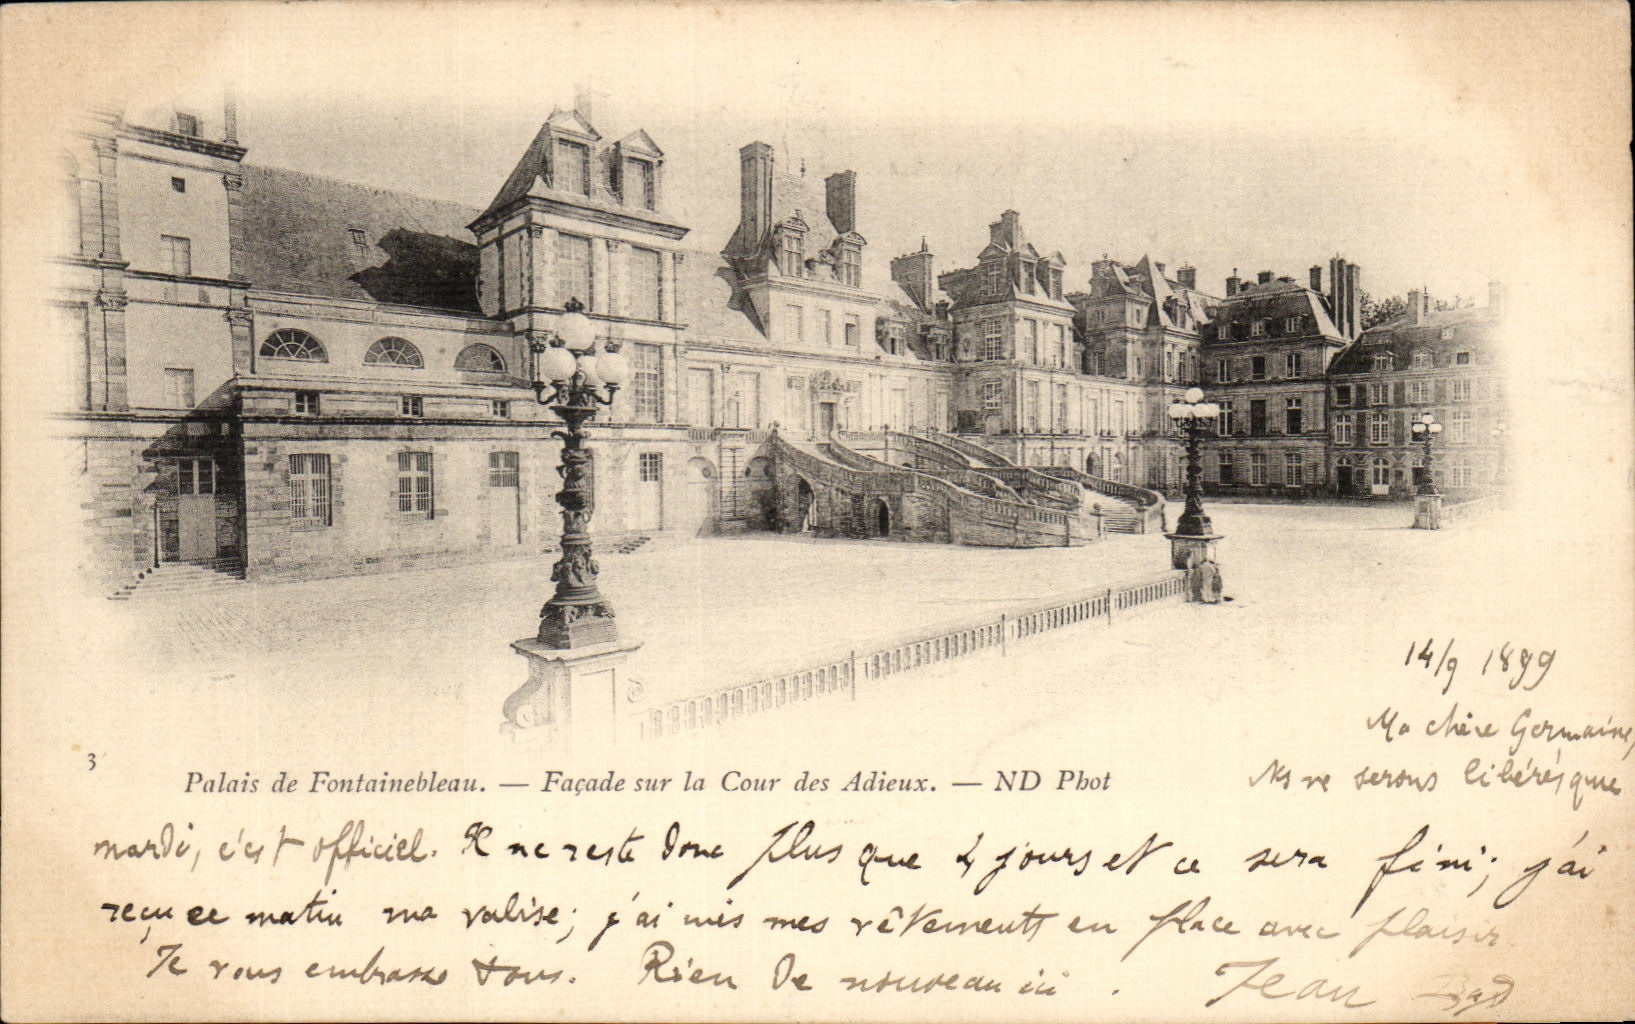 14/9 1899
Ma chère Germaine,
Ns ne serons libérés que
3
Palais de Fontainebleau. — Façade sur la Cour des Adieux. — ND Phot
mardi, c'est officiel. Il ne reste donc plus que 4 jours et ce sera fini; j'ai
reçu ce matin ma valise; j'ai mis mes vêtements en place avec plaisir.
Je vous embrasse tous. Rien de nouveau ici. Jean